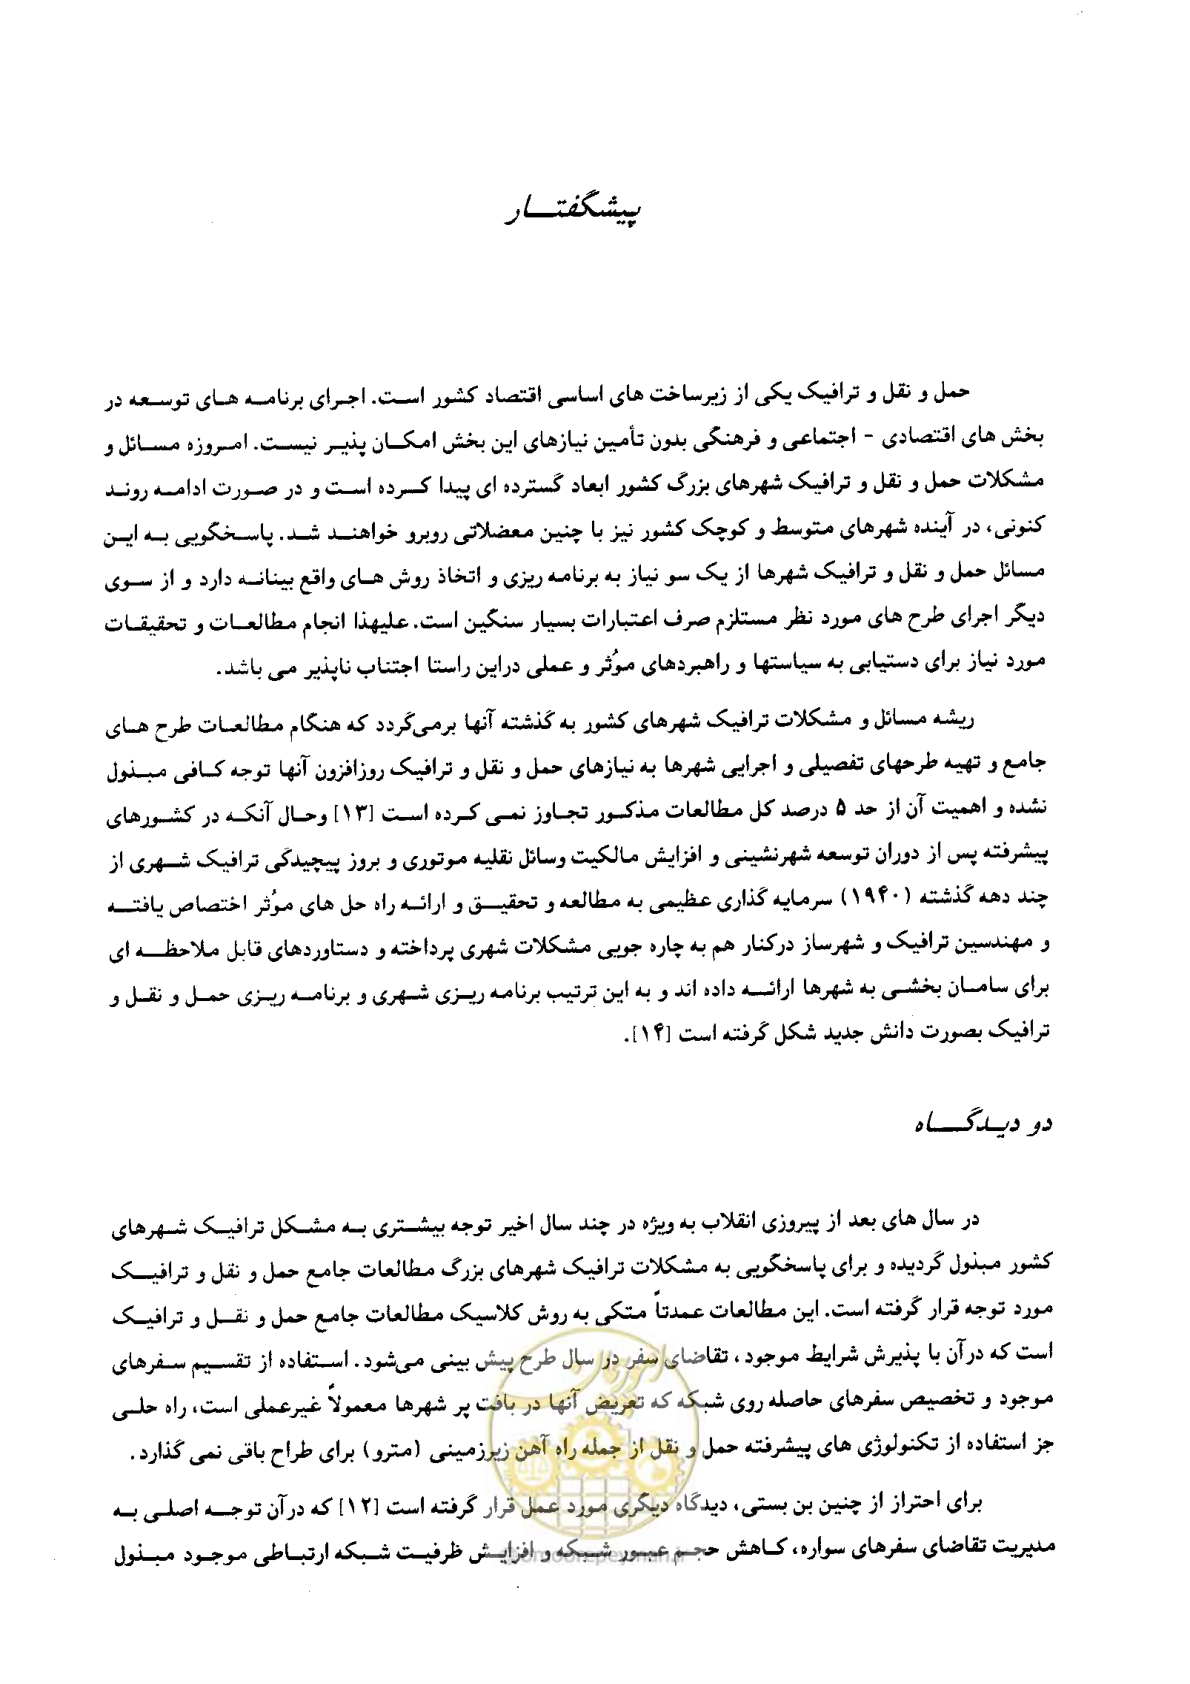 پیشگفتار
حمل و نقل و ترافیک یکی از زیرساخت های اساسی اقتصاد کشور است. اجرای برنامه های توسعه در
بخش های اقتصادی - اجتماعی و فرهنگی بدون تأمین نیازهای این بخش امکان پذیر نیست. امروزه مسائل و
مشکلات حمل و نقل و ترافیک شهرهای بزرگ کشور ابعاد گسترده ای پیدا کرده است و در صورت ادامه روند
کنونی، در آینده شهرهای متوسط و کوچک کشور نیز با چنین معضلاتی روبرو خواهند شد. پاسخگویی به این
مسائل حمل و نقل و ترافیک شهرها از یک سو نیاز به برنامه ریزی و اتخاذ روش های واقع بینانه دارد و از سوی
دیگر اجرای طرح های مورد نظر مستلزم صرف اعتبارات بسیار سنگین است. علیهذا انجام مطالعات و تحقیقات
مورد نیاز برای دستیابی به سیاستها و راهبردهای مؤثر و عملی دراین راستا اجتناب ناپذیر می باشد.
ریشه مسائل و مشکلات ترافیک شهرهای کشور به گذشته آنها برمی‌گردد که هنگام مطالعات طرح های
جامع و تهیه طرحهای تفصیلی و اجرایی شهرها به نیازهای حمل و نقل و ترافیک روزافزون آنها توجه کافی مبذول
نشده و اهمیت آن از حد ۵ درصد کل مطالعات مذکور تجاوز نمی کرده است [۱۳] وحال آنکه در کشورهای
پیشرفته پس از دوران توسعه شهرنشینی و افزایش مالکیت وسائل نقلیه موتوری و بروز پیچیدگی ترافیک شهری از
چند دهه گذشته (۱۹۴۰) سرمایه گذاری عظیمی به مطالعه و تحقیق و ارائه راه حل های مؤثر اختصاص یافته
و مهندسین ترافیک و شهرساز درکنار هم به چاره جویی مشکلات شهری پرداخته و دستاوردهای قابل ملاحظه ای
برای سامان بخشی به شهرها ارائه داده اند و به این ترتیب برنامه ریزی شهری و برنامه ریزی حمل و نقل و
ترافیک بصورت دانش جدید شکل گرفته است [۱۴].
دو دیدگاه
در سال های بعد از پیروزی انقلاب به ویژه در چند سال اخیر توجه بیشتری به مشکل ترافیک شهرهای
کشور مبذول گردیده و برای پاسخگویی به مشکلات ترافیک شهرهای بزرگ مطالعات جامع حمل و نقل و ترافیک
مورد توجه قرار گرفته است. این مطالعات عمدتاً متکی به روش کلاسیک مطالعات جامع حمل و نقل و ترافیک
است که درآن با پذیرش شرایط موجود، تقاضای سفر در سال طرح پیش بینی می‌شود. استفاده از تقسیم سفرهای
موجود و تخصیص سفرهای حاصله روی شبکه که تعریض آنها در بافت پر شهرها معمولاً غیرعملی است، راه حلی
جز استفاده از تکنولوژی های پیشرفته حمل و نقل از جمله راه آهن زیرزمینی (مترو) برای طراح باقی نمی گذارد.
برای احتراز از چنین بن بستی، دیدگاه دیگری مورد عمل قرار گرفته است [۱۲] که درآن توجه اصلی به
مدیریت تقاضای سفرهای سواره، کاهش حجم عبور شبکه و افزایش ظرفیت شبکه ارتباطی موجود مبذول